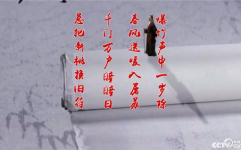 爆竹声中一岁除
春风送暖入屠苏
千门万户曈曈日
总把新桃换旧符
CCTV